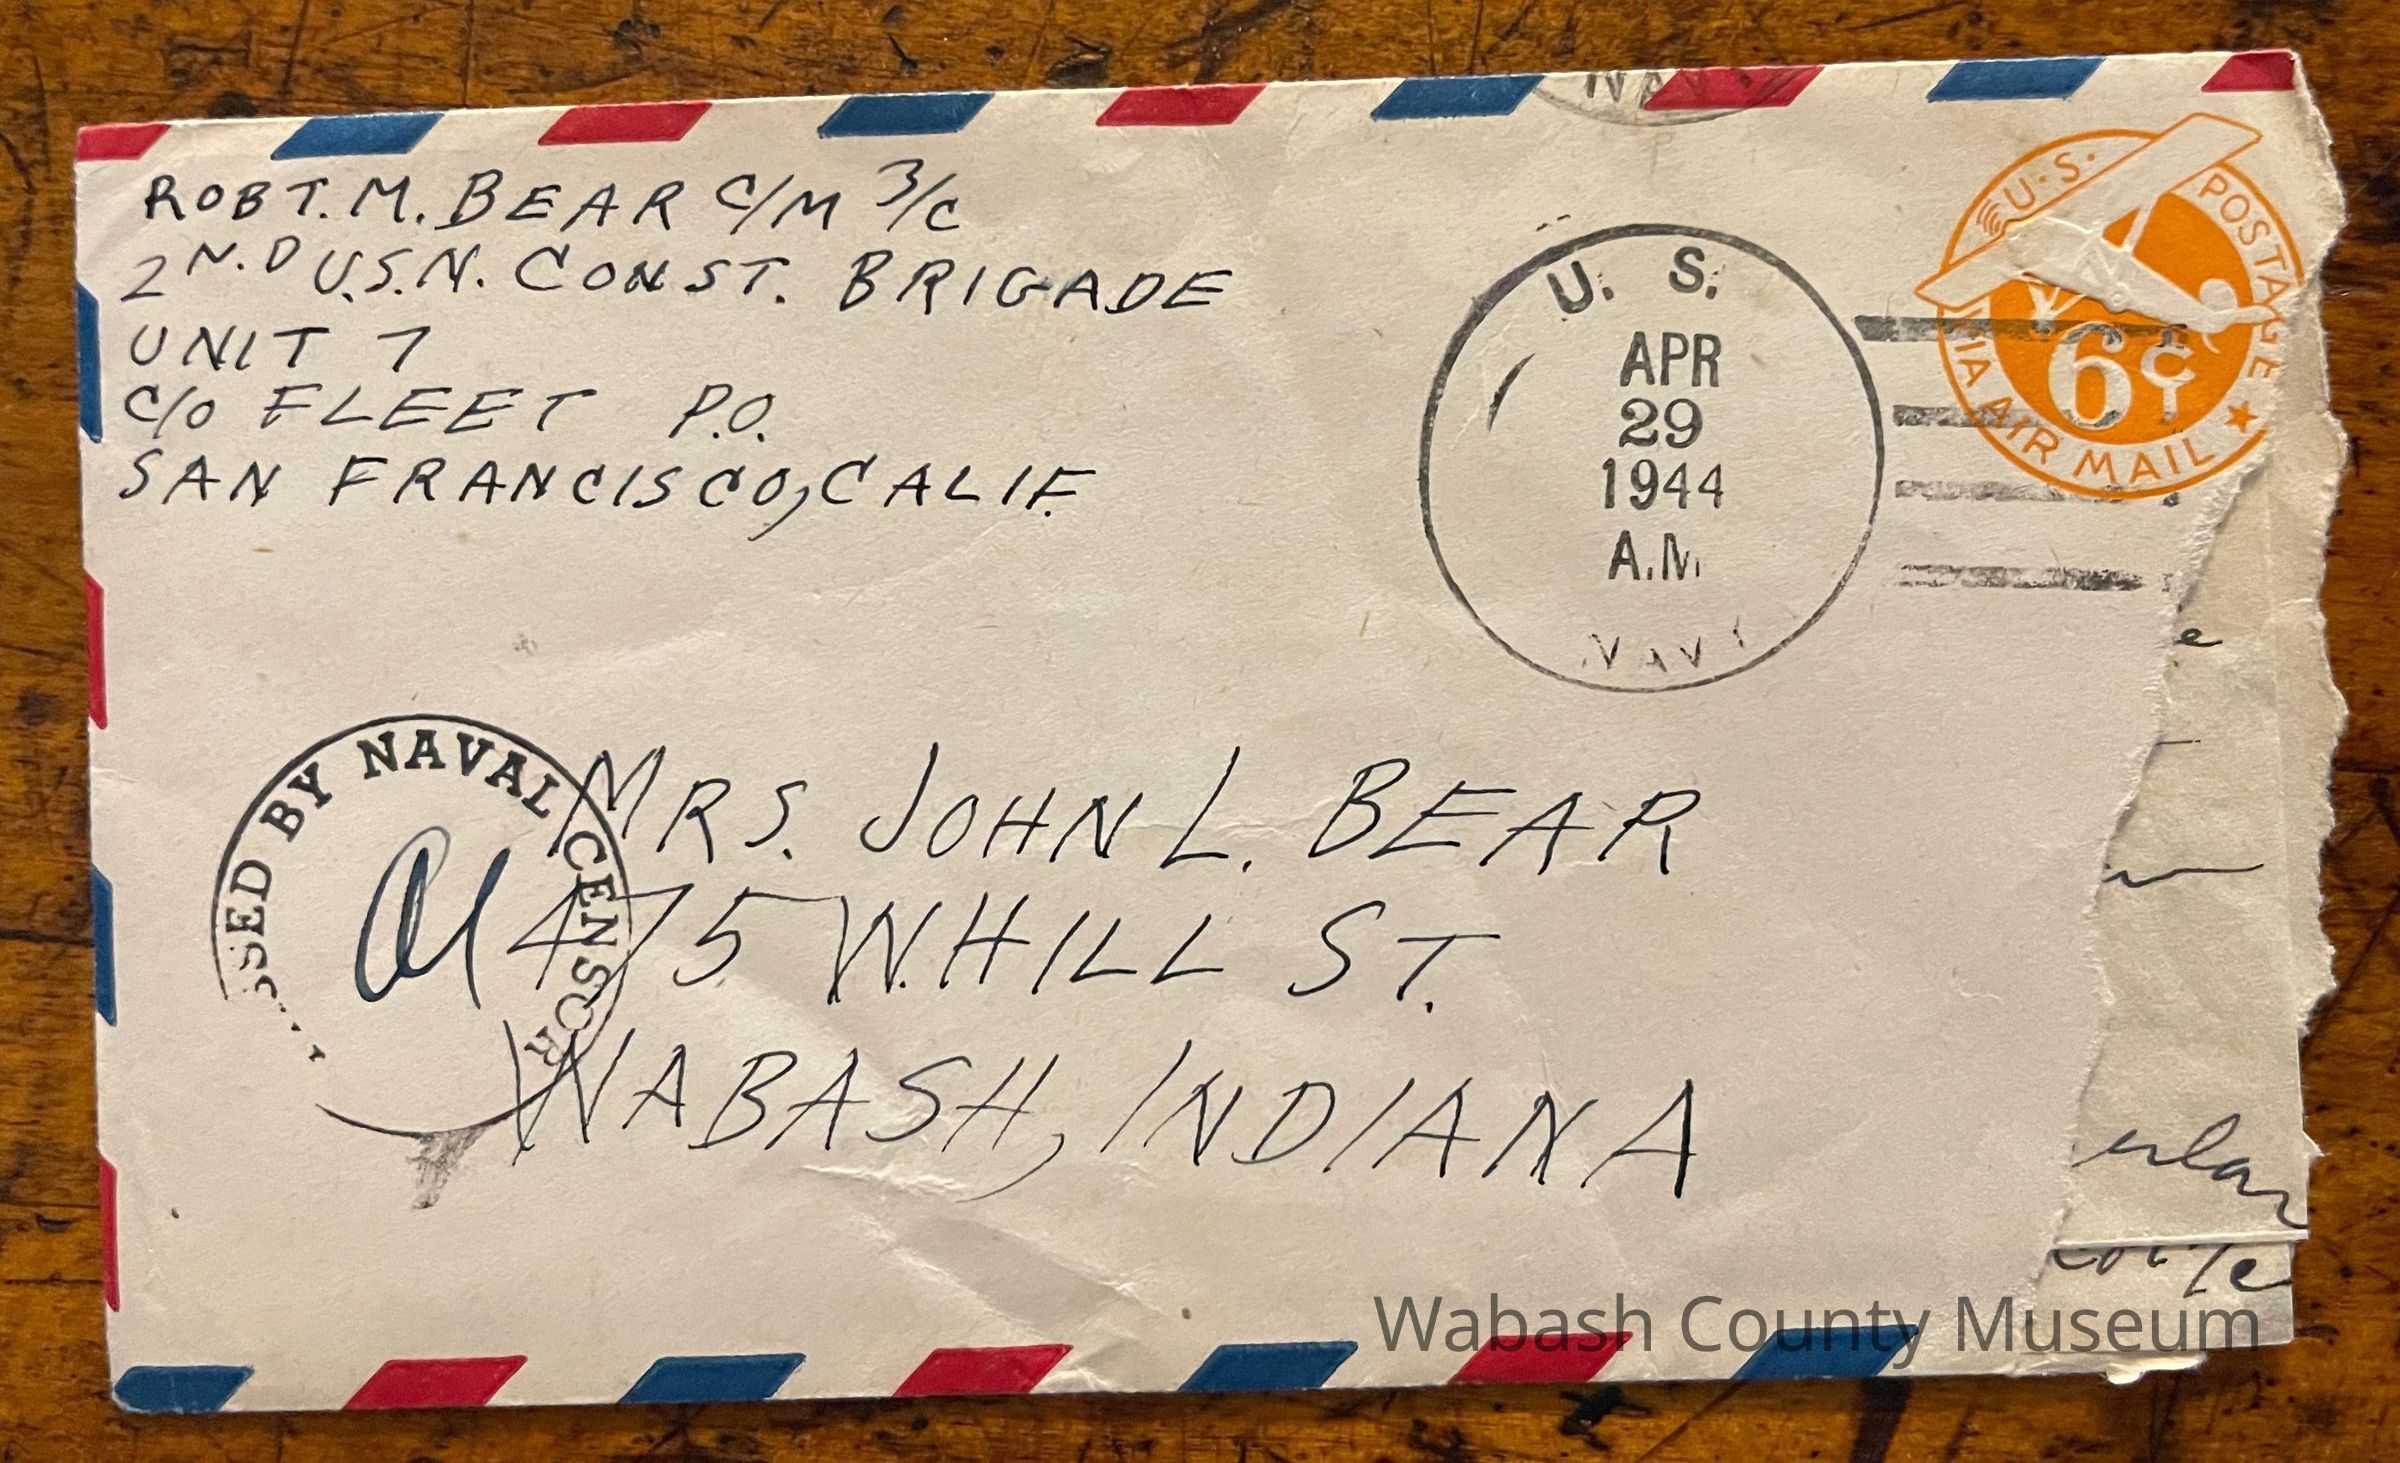 ROBT. M. BEAR C/M 3/C
2N.D U.S.N. CONST. BRIGADE
UNIT 7
C/O FLEET P.O.
SAN FRANCISCO, CALIF.
NAVY
U. S.
APR
29
1944
A.M.
NAVY
U.S. POSTAGE
6¢
VIA AIR MAIL
SSED BY NAVAL CENSOR
MRS. JOHN L. BEAR
475 W. HILL ST.
WABASH, INDIANA
Wabash County Museum